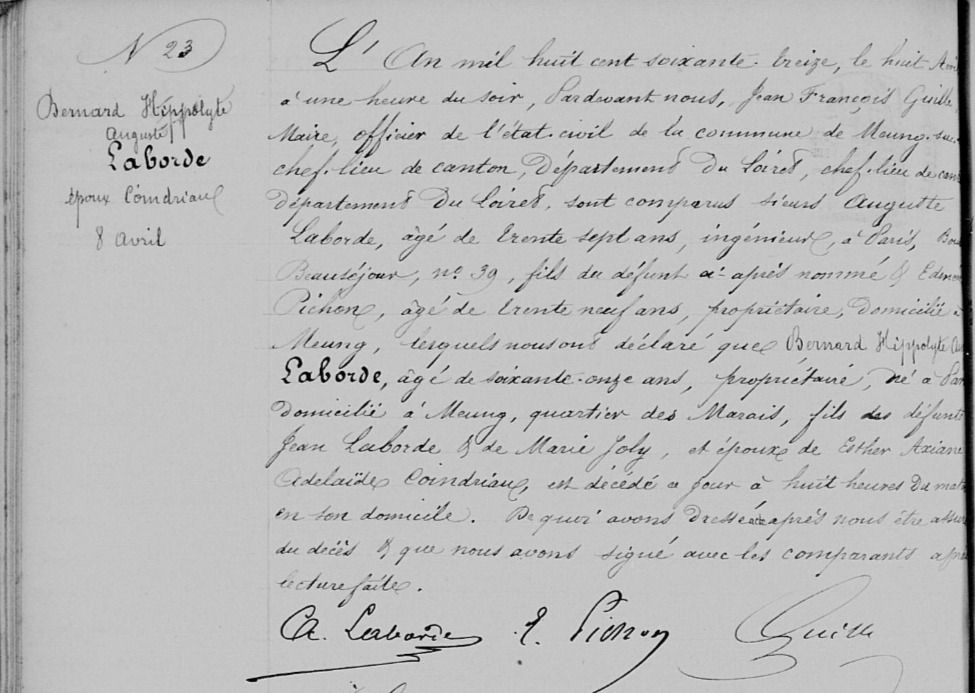 N 23
Bernard Hippolyte
Auguste
Laborde
époux Coindriau
8 Avril
L'An mil huit cent soixante-treize, le huit Avril
à une heure du soir, Pardevant nous, Jean François Guille
Maire, officier de l'état-civil de la commune de Meung-sur-
chef-lieu de canton, Département du Loiret, chef-lieu de canton
département Du Loiret, sont comparus sieurs Auguste
Laborde, âgé de trente sept ans, ingénieur, à Paris,
Beauséjour, no. 39, fils du défunt ci-après nommé &
Pichon, âgé de trente neuf ans, propriétaire, Domicilié à
Meung, lesquels nous ont déclaré que Bernard Hippolyte
Laborde, âgé de soixante-onze ans, propriétaire, né à
domicilié à Meung, quartier des Marais, fils des défunts
Jean Laborde & de Marie Joly, et époux de Esther
Adelaïde Coindriau, est décédé ce jour à huit heures Du matin
en son domicile. De quoi avons Dressé acte après nous être assuré
du decès & que nous avons signé avec les comparants après
lecture faite.
A. Laborde E. Pichon Guille